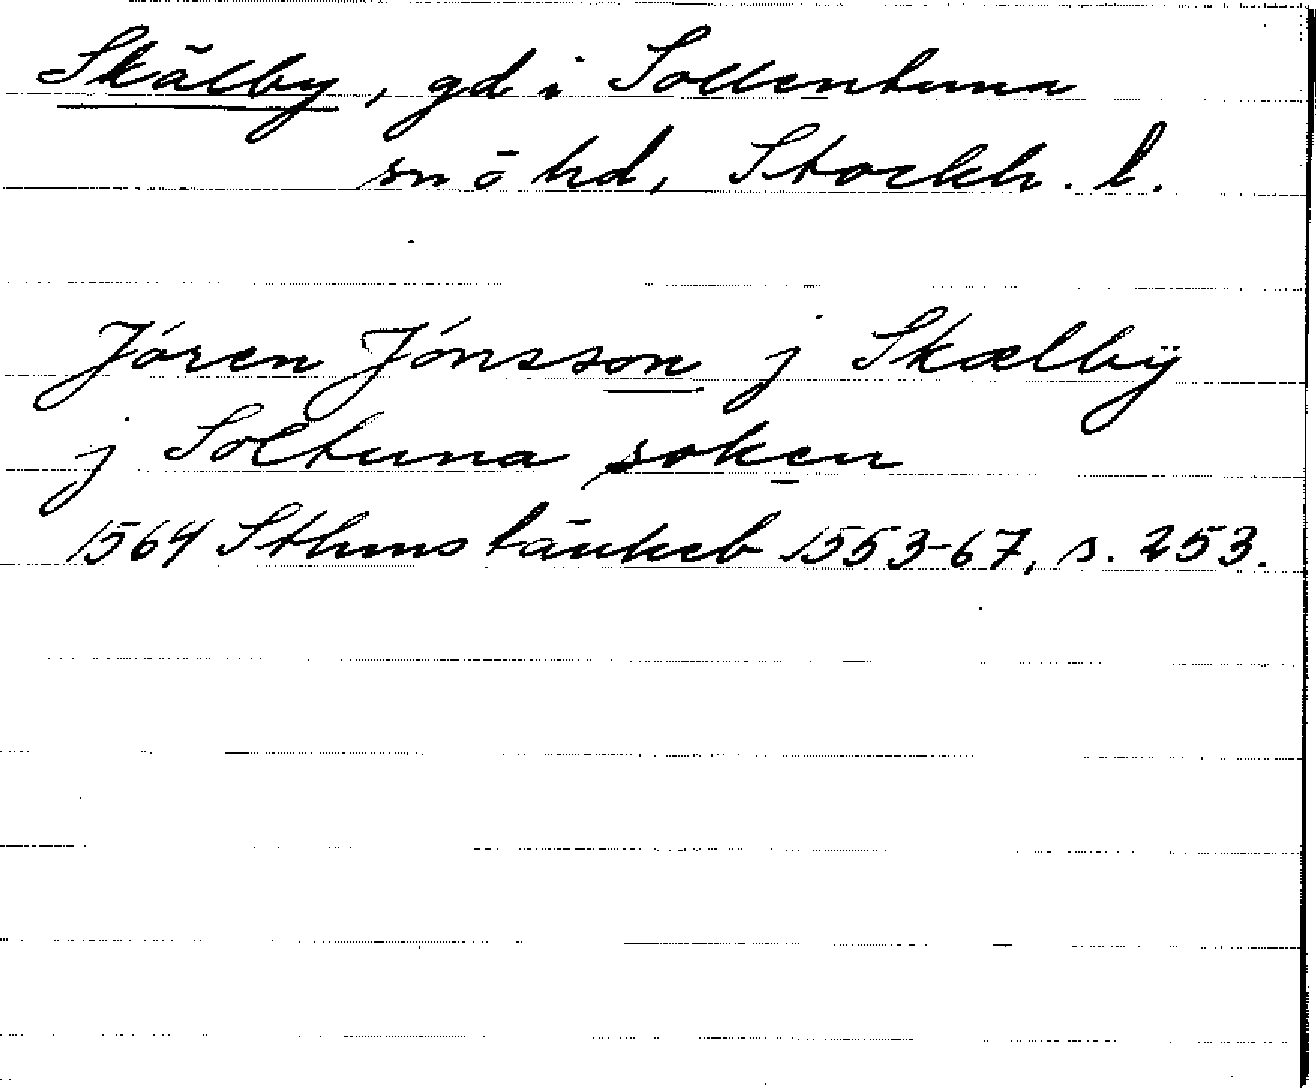 Skälby, gd i Sollentuna
sn ö hd, Stockh. l.
Jören Jönsson j Skælbÿ
j Soltuna soken
1564 Sthms tänkeb 1553-67, s. 253.